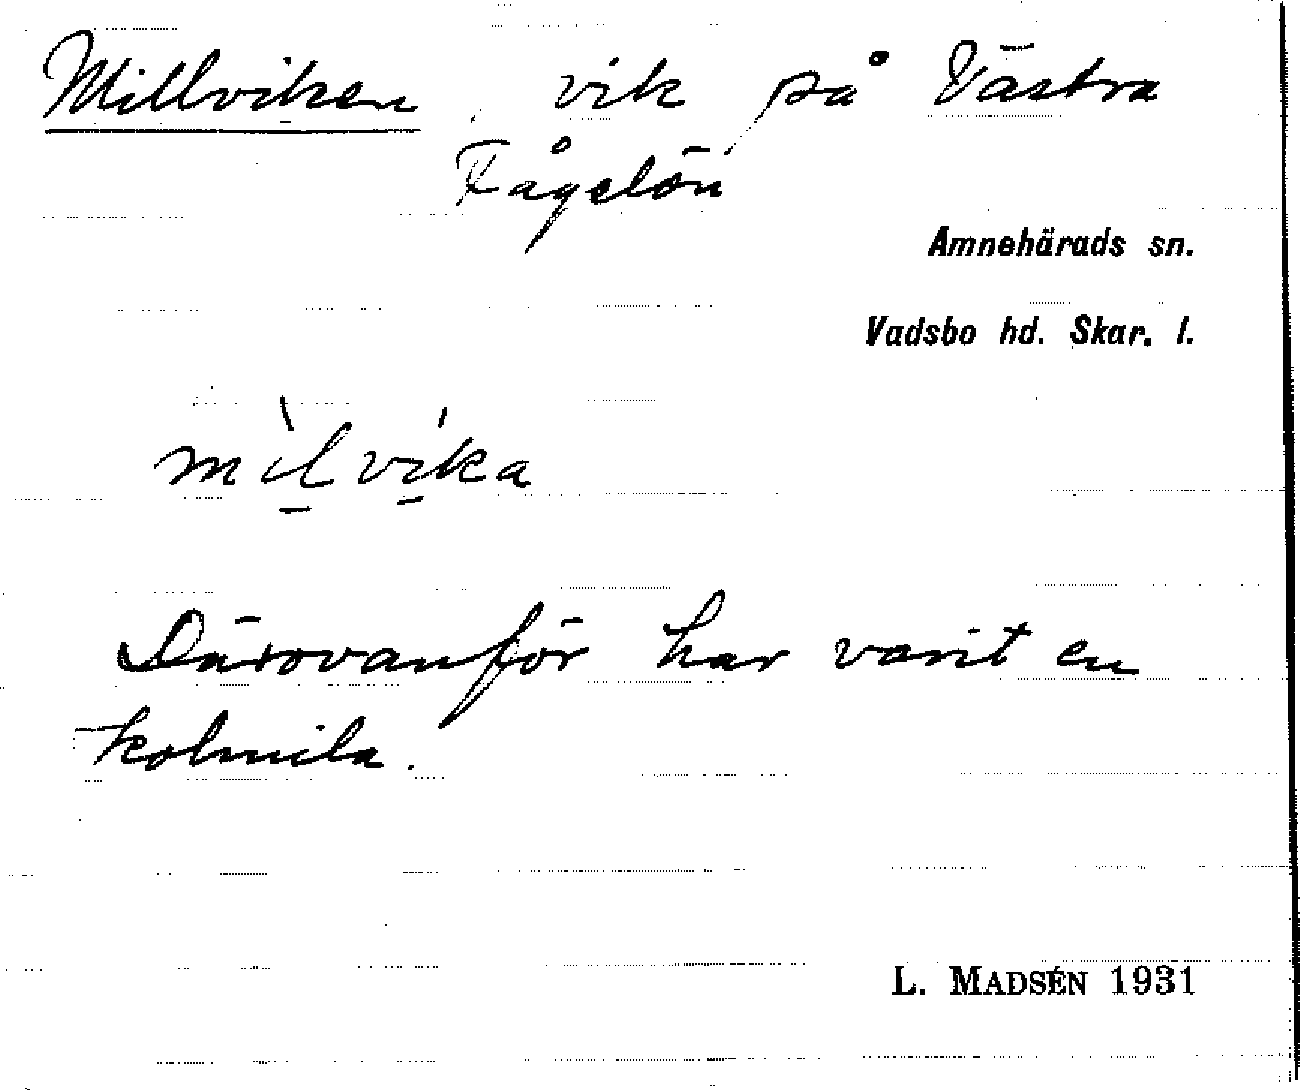 Millviken vik på Västra
Fågelön
Amnehärads sn.
Vadsbo hd. Skar. l.
mìlvíka
Därovanför har varit en
kolmila.
L. MADSÉN 1931